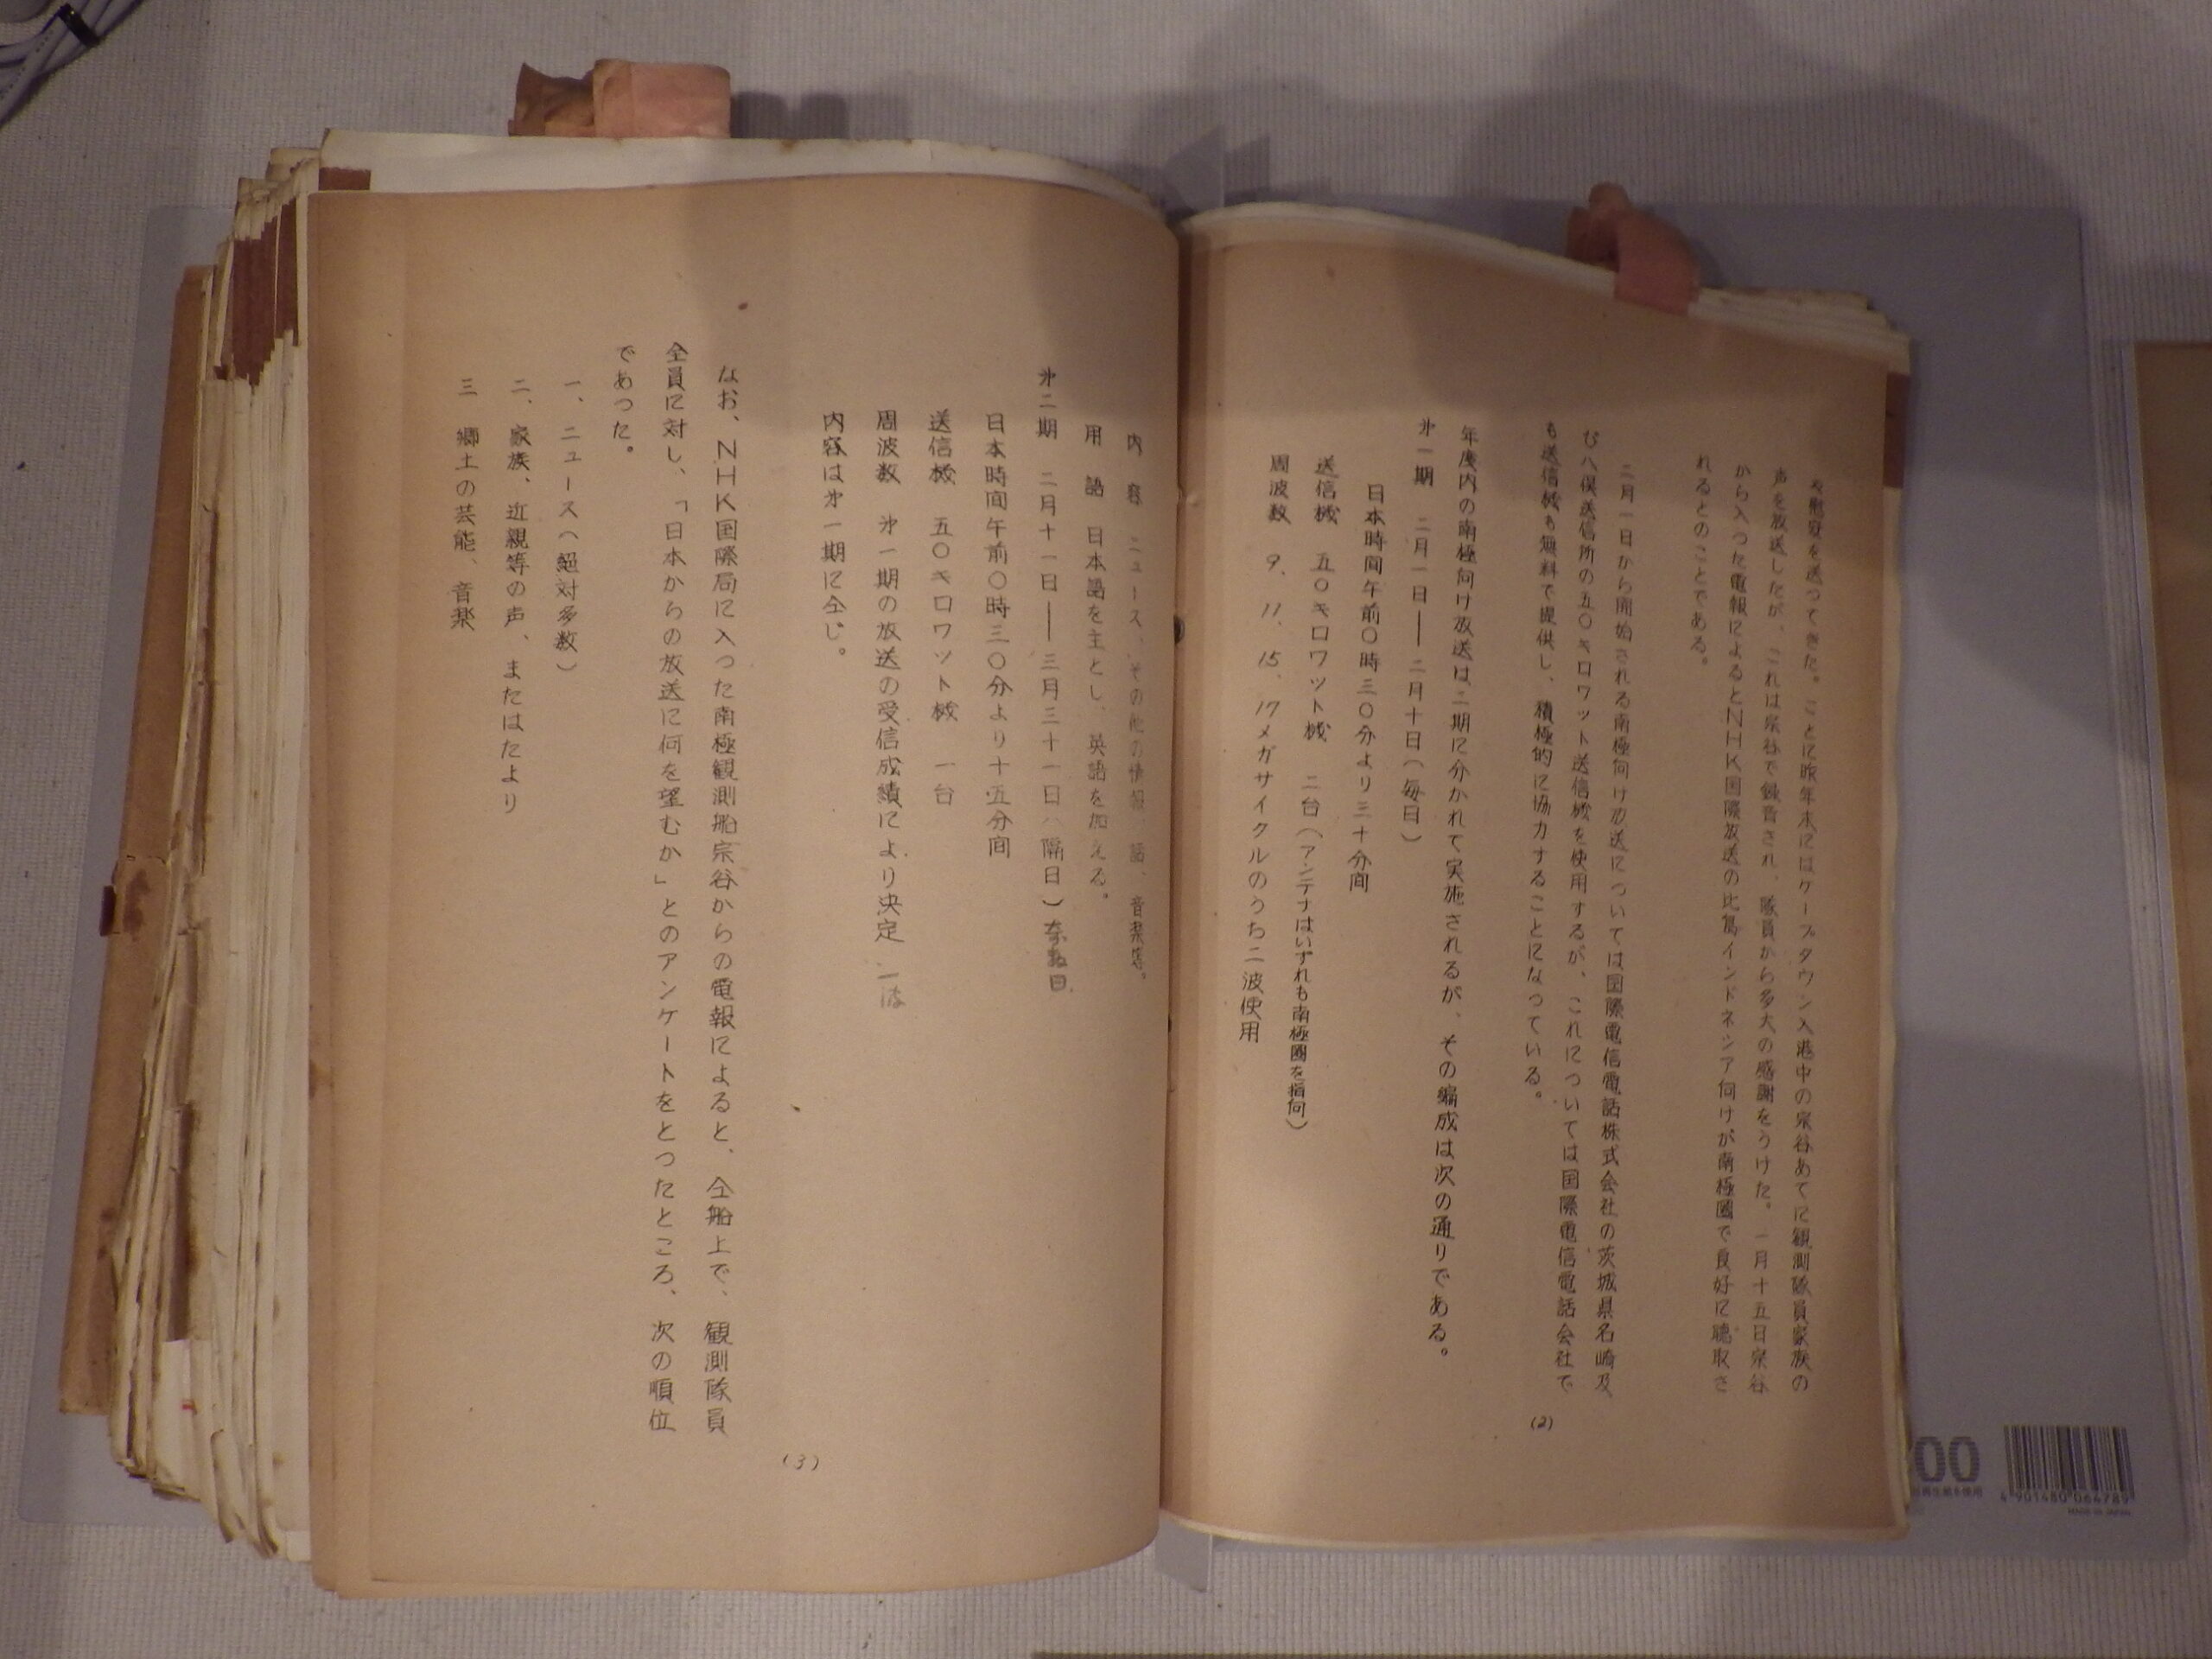 慰安を送ってきた。ことに昨年末にはケープタウン入港中の宗谷あてに観測隊員家族の
声を放送したが、これは宗谷で録音され、隊員から多大の感謝をうけた。一月十五日宗谷
から入った電報によるとNHK国際放送の比島インドネシア向けが南極圏で良好に聴取さ
れるとのことである。
二月一日から開始される南極向け放送については国際電信電話株式会社の茨城県名崎及
び八俣送信所の五〇キロワット送信機を使用するが、これについては国際電信電話会社で
も送信機も無料で提供し、積極的に協力することになっている。
年度内の南極向け放送は二期に分かれて実施されるが、その編成は次の通りである。
㐧一期 二月一日――二月十日(毎日)
日本時間午前〇時三〇分より三十分間
送信機 五〇キロワット機 二台(アンテナはいずれも南極圏を指向)
周波数 9、11、15、17メガサイクルのうち二波使用
(2)
内容 ニュース、その他の情報、話、音楽等。
用語 日本語を主とし、英語を加える。
㐧二期 二月十一日――三月三十一日(隔日)奇数日
日本時間午前〇時三〇分より十五分間
送信機 五〇キロワット機 一台
周波数 㐧一期の放送の受信成績により決定 一波
内容は㐧一期に仝じ。
なお、NHK国際局に入った南極観測船宗谷からの電報によると、仝船上で、観測隊員
全員に対し、「日本からの放送に何を望むか」とのアンケートをとったところ、次の順位
であった。
一、ニュース(絶対多数)
二、家族、近親等の声、またはたより
三 郷土の芸能、音楽
(3)
00
4 901480 064789
MADE IN JAPAN